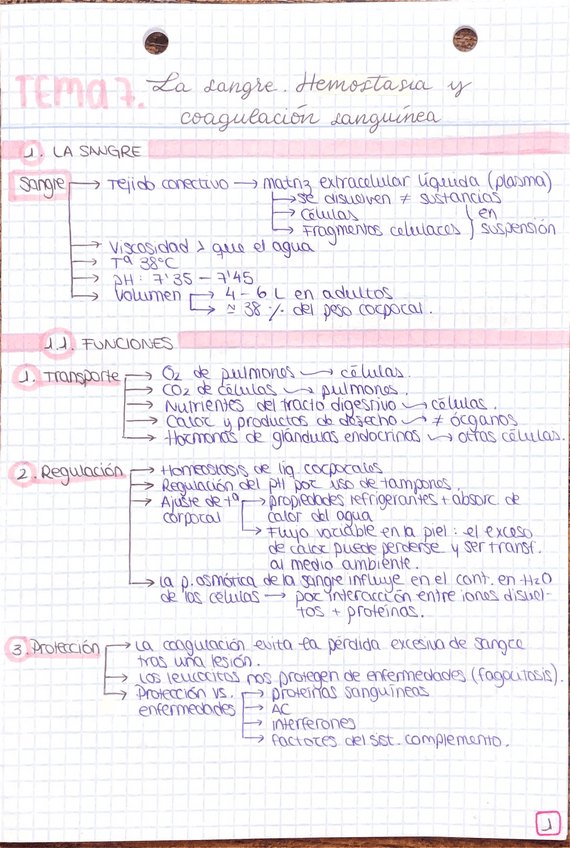 TEMA 7. La sangre. Hemostasia y
coagulación sanguínea
1. LA SANGRE
Sangre → Tejido conectivo → matriz extracelular líquida (plasma)
→ se disuelven ≠ sustancias
→ Células } en
→ Fragmentos celulares } suspensión
→ Viscosidad > que el agua
→ Tª 38°C
→ pH: 7'35 – 7'45
→ Volumen → 4 – 6 L en adultos
→ ≃ 38 % del peso corporal.
1.1. FUNCIONES
1. Transporte → O2 de pulmones → células.
→ CO2 de células → pulmones.
→ Nutrientes del tracto digestivo → células.
→ Calor y productos de desecho → ≠ órganos
→ Hormonas de glándulas endocrinas → otras células.
2. Regulación → Homeostasis de líq. corporales
→ Regulación del pH por uso de tampones.
→ Ajuste de tª → propiedades refrigerantes + absorc. de
corporal calor del agua
→ Flujo variable en la piel: el exceso
de calor puede perderse y ser transf.
al medio ambiente.
→ La p. osmótica de la sangre influye en el cont. en H2O
de las células → por interacción entre iones disuel-
tos + proteínas.
3. Protección → La coagulación evita la pérdida excesiva de sangre
tras una lesión.
→ Los leucocitos nos protegen de enfermedades (fagocitosis).
→ Protección vs. → proteínas sanguíneas
enfermedades → AC
→ interferones
→ factores del sist. complemento.
1